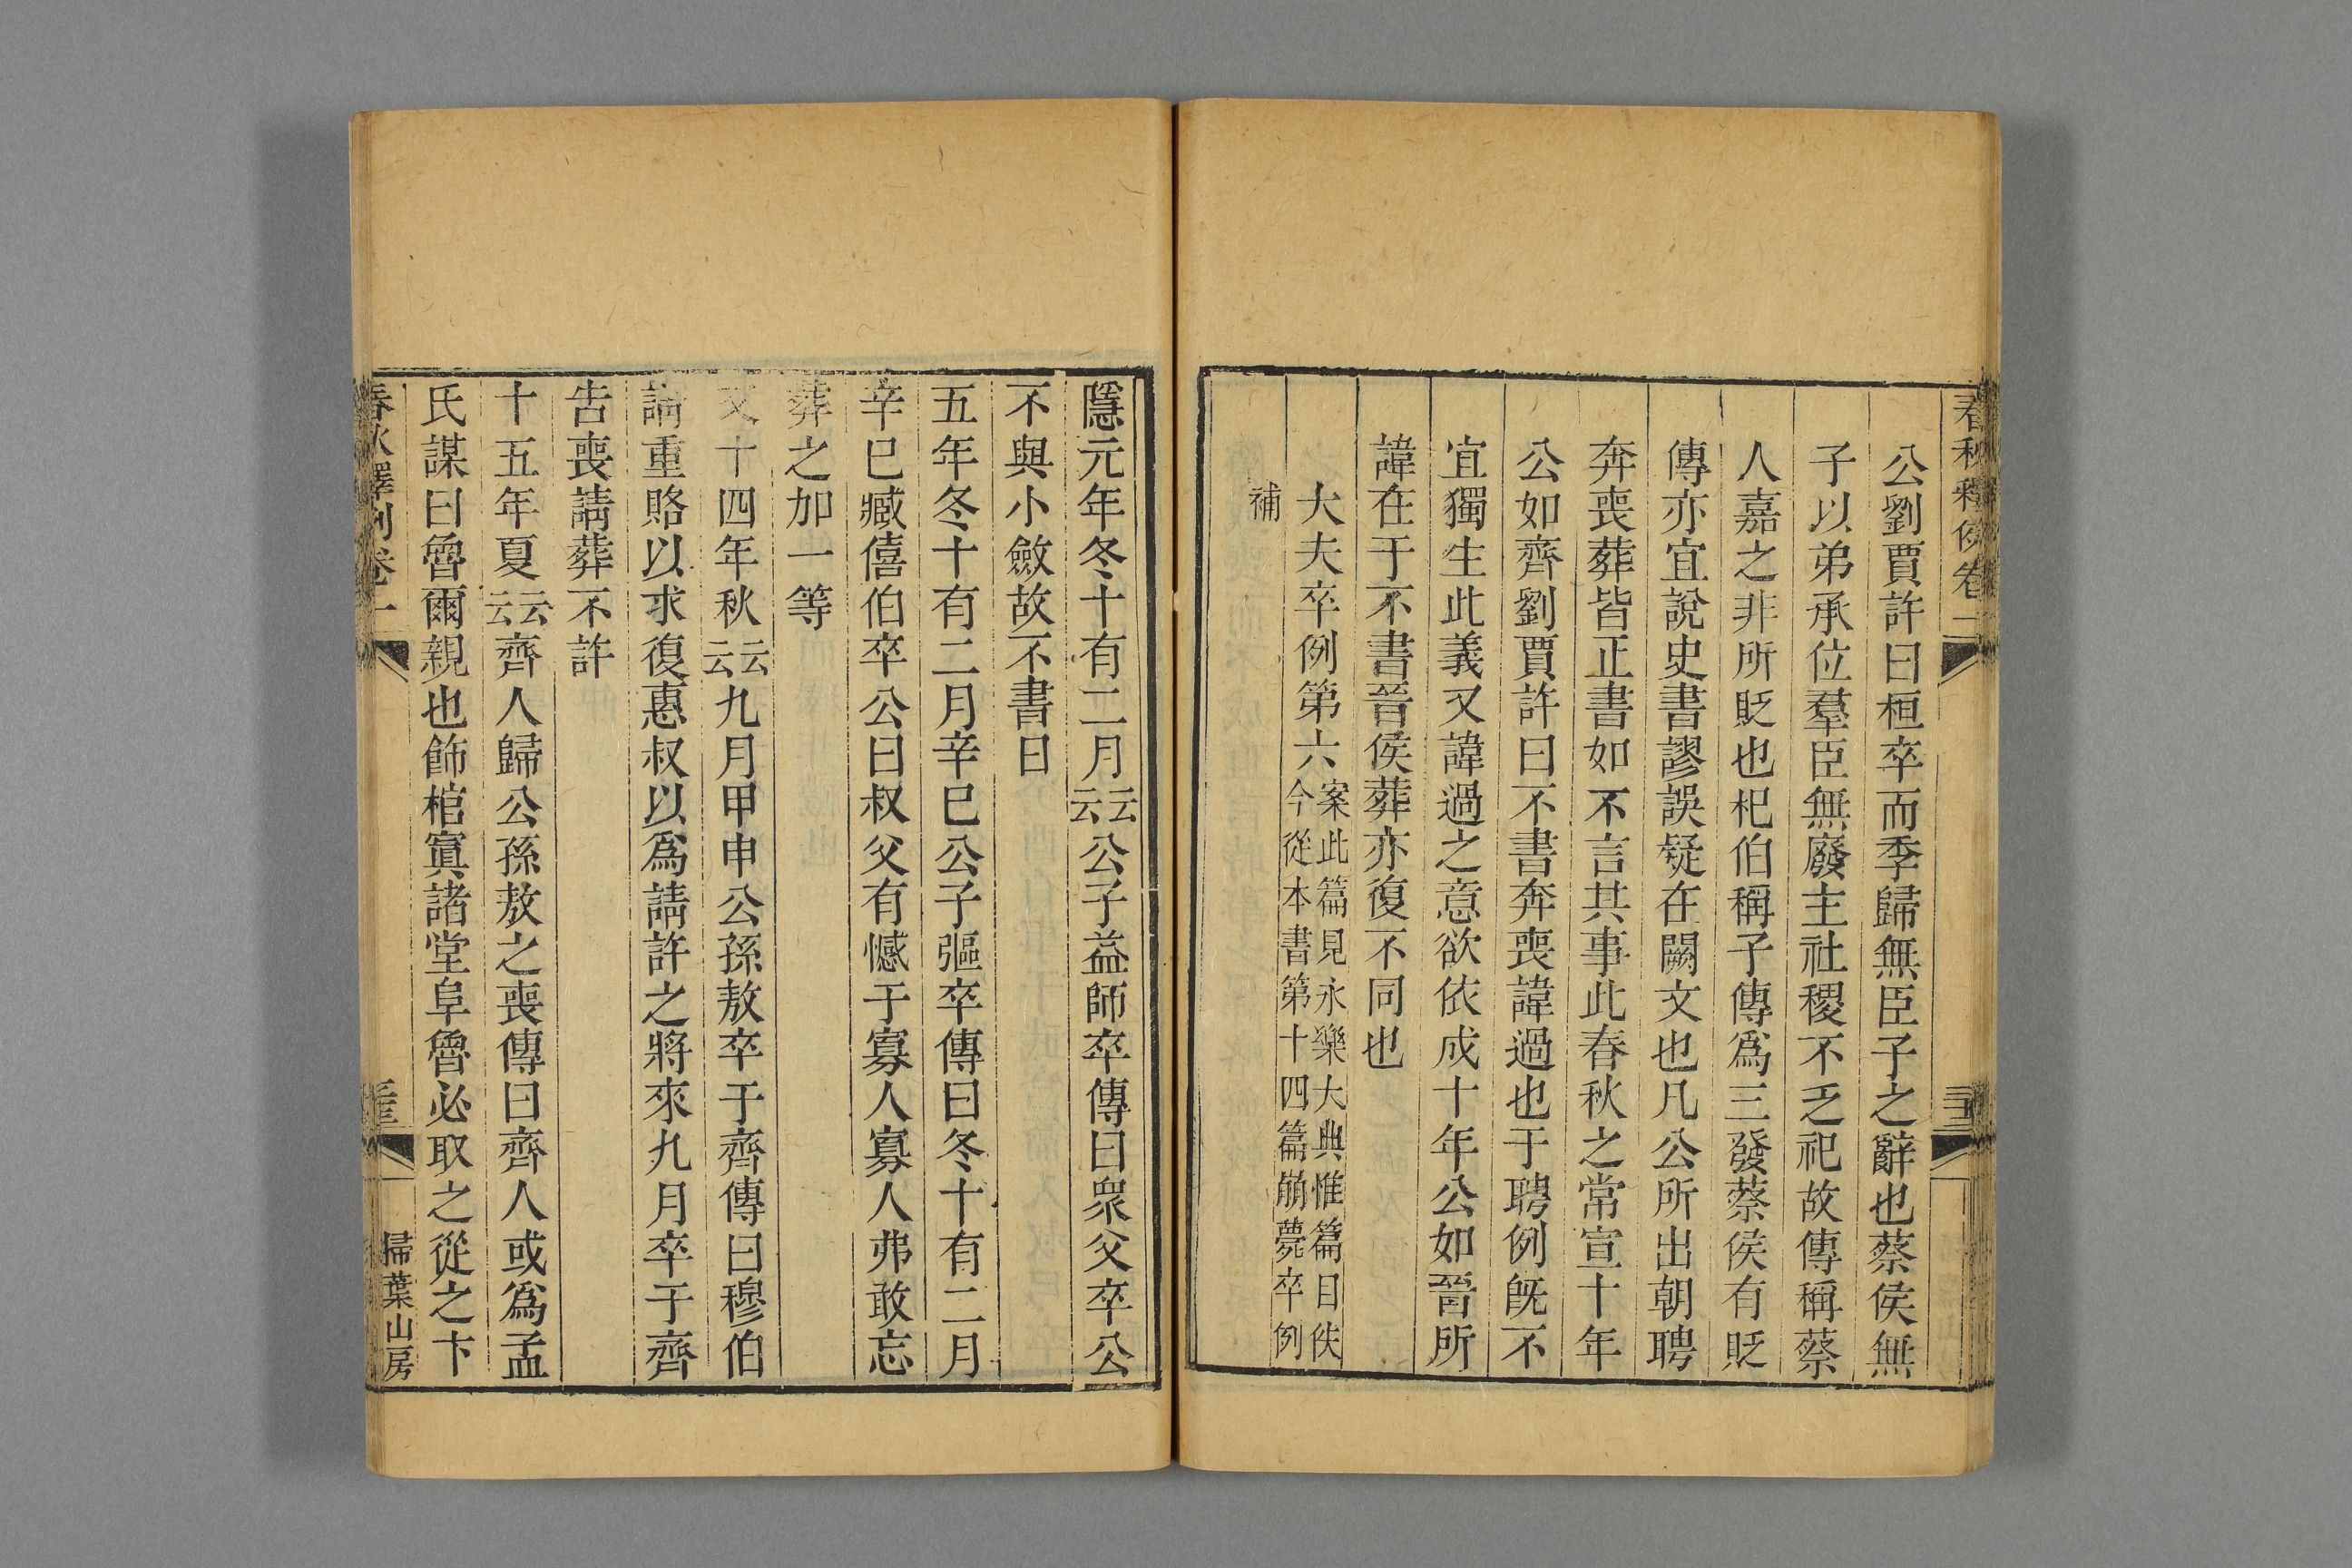 春秋釋例卷一
公劉賈許曰桓卒而季歸無臣子之辭也蔡侯無
子以弟承位羣臣無廢主社稷不乏祀故傳稱蔡
人嘉之非所貶也杞伯稱子傳爲三發蔡侯有貶
傳亦宜說史書謬誤疑在闕文也凡公所出朝聘
奔喪葬皆正書如不言其事此春秋之常宣十年
公如齊劉賈許曰不書奔喪諱過也于聘例既不
宜獨生此義又諱過之意欲依成十年公如晉所
諱在于不書晉侯葬亦復不同也
大夫卒例第六案此篇見永樂大典惟篇目佚
今從本書第十四篇崩薨卒例
補
隱元年冬十有二月云云公子益師卒傳曰衆父卒公
不與小斂故不書日
五年冬十有二月辛巳公子彄卒傳曰冬十有二月
辛巳臧僖伯卒公曰叔父有憾于寡人寡人弗敢忘
葬之加一等
文十四年秋云云九月甲申公孫敖卒于齊傳曰穆伯
請重賂以求復惠叔以爲請許之將來九月卒于齊
告喪請葬不許
十五年夏云云齊人歸公孫敖之喪傳曰齊人或爲孟
氏謀曰魯爾親也飾棺寘諸堂阜魯必取之從之卞
春秋釋例卷一
掃葉山房